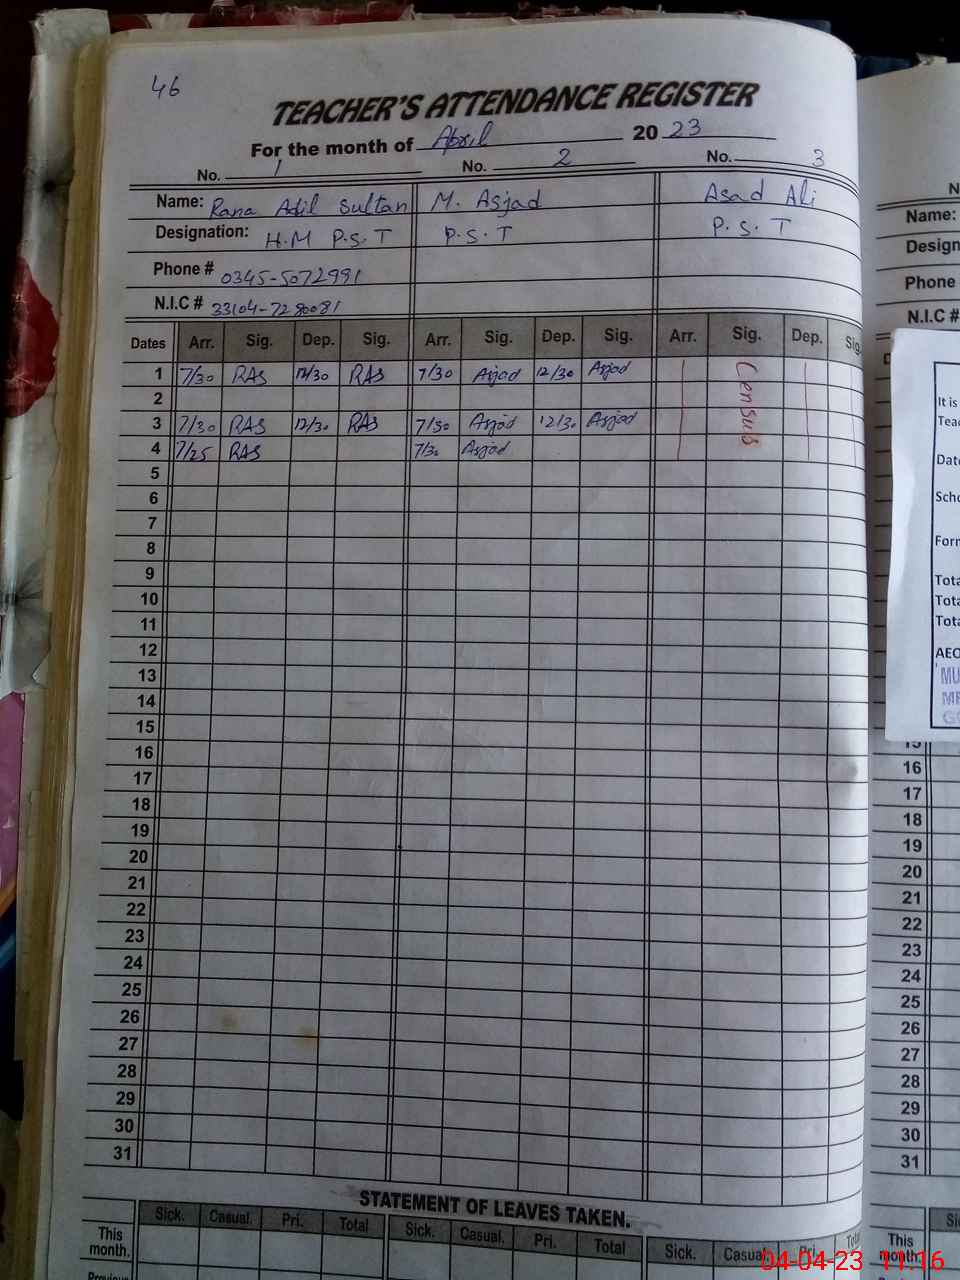 46
TEACHER'S ATTENDANCE REGISTER
For the month of April 2023
No. 1 No. 2 No. 3
Name: Rana Adil Sultan M. Asjad Asad Ali
Designation: H.M P.S.T P.S.T P.S.T
Phone # 0345-5072991
N.I.C # 33104-7280081
Dates Arr. Sig. Dep. Sig. Arr. Sig. Dep. Sig. Arr. Sig. Dep. Sig.
1 7/30 RAS 12/30 RAS 7/30 Asjad 12/30 Asjad Census
2
3 7/30 RAS 12/30 RAS 7/30 Asjad 12/30 Asjad
4 7/25 RAS 7/30 Asjad
5
6
7
8
9
10
11
12
13
14
15
16
17
18
19
20
21
22
23
24
25
26
27
28
29
30
31
STATEMENT OF LEAVES TAKEN.
Sick. Casual. Pri. Total Sick. Casual. Pri. Total Sick. Casual. Pri.
This month.
Name:
Phone
N.I.C #
It is
Date
Form
AEO
15
16
17
18
19
20
21
22
23
24
25
26
27
28
29
30
31
This month.
04-04-23 11:16